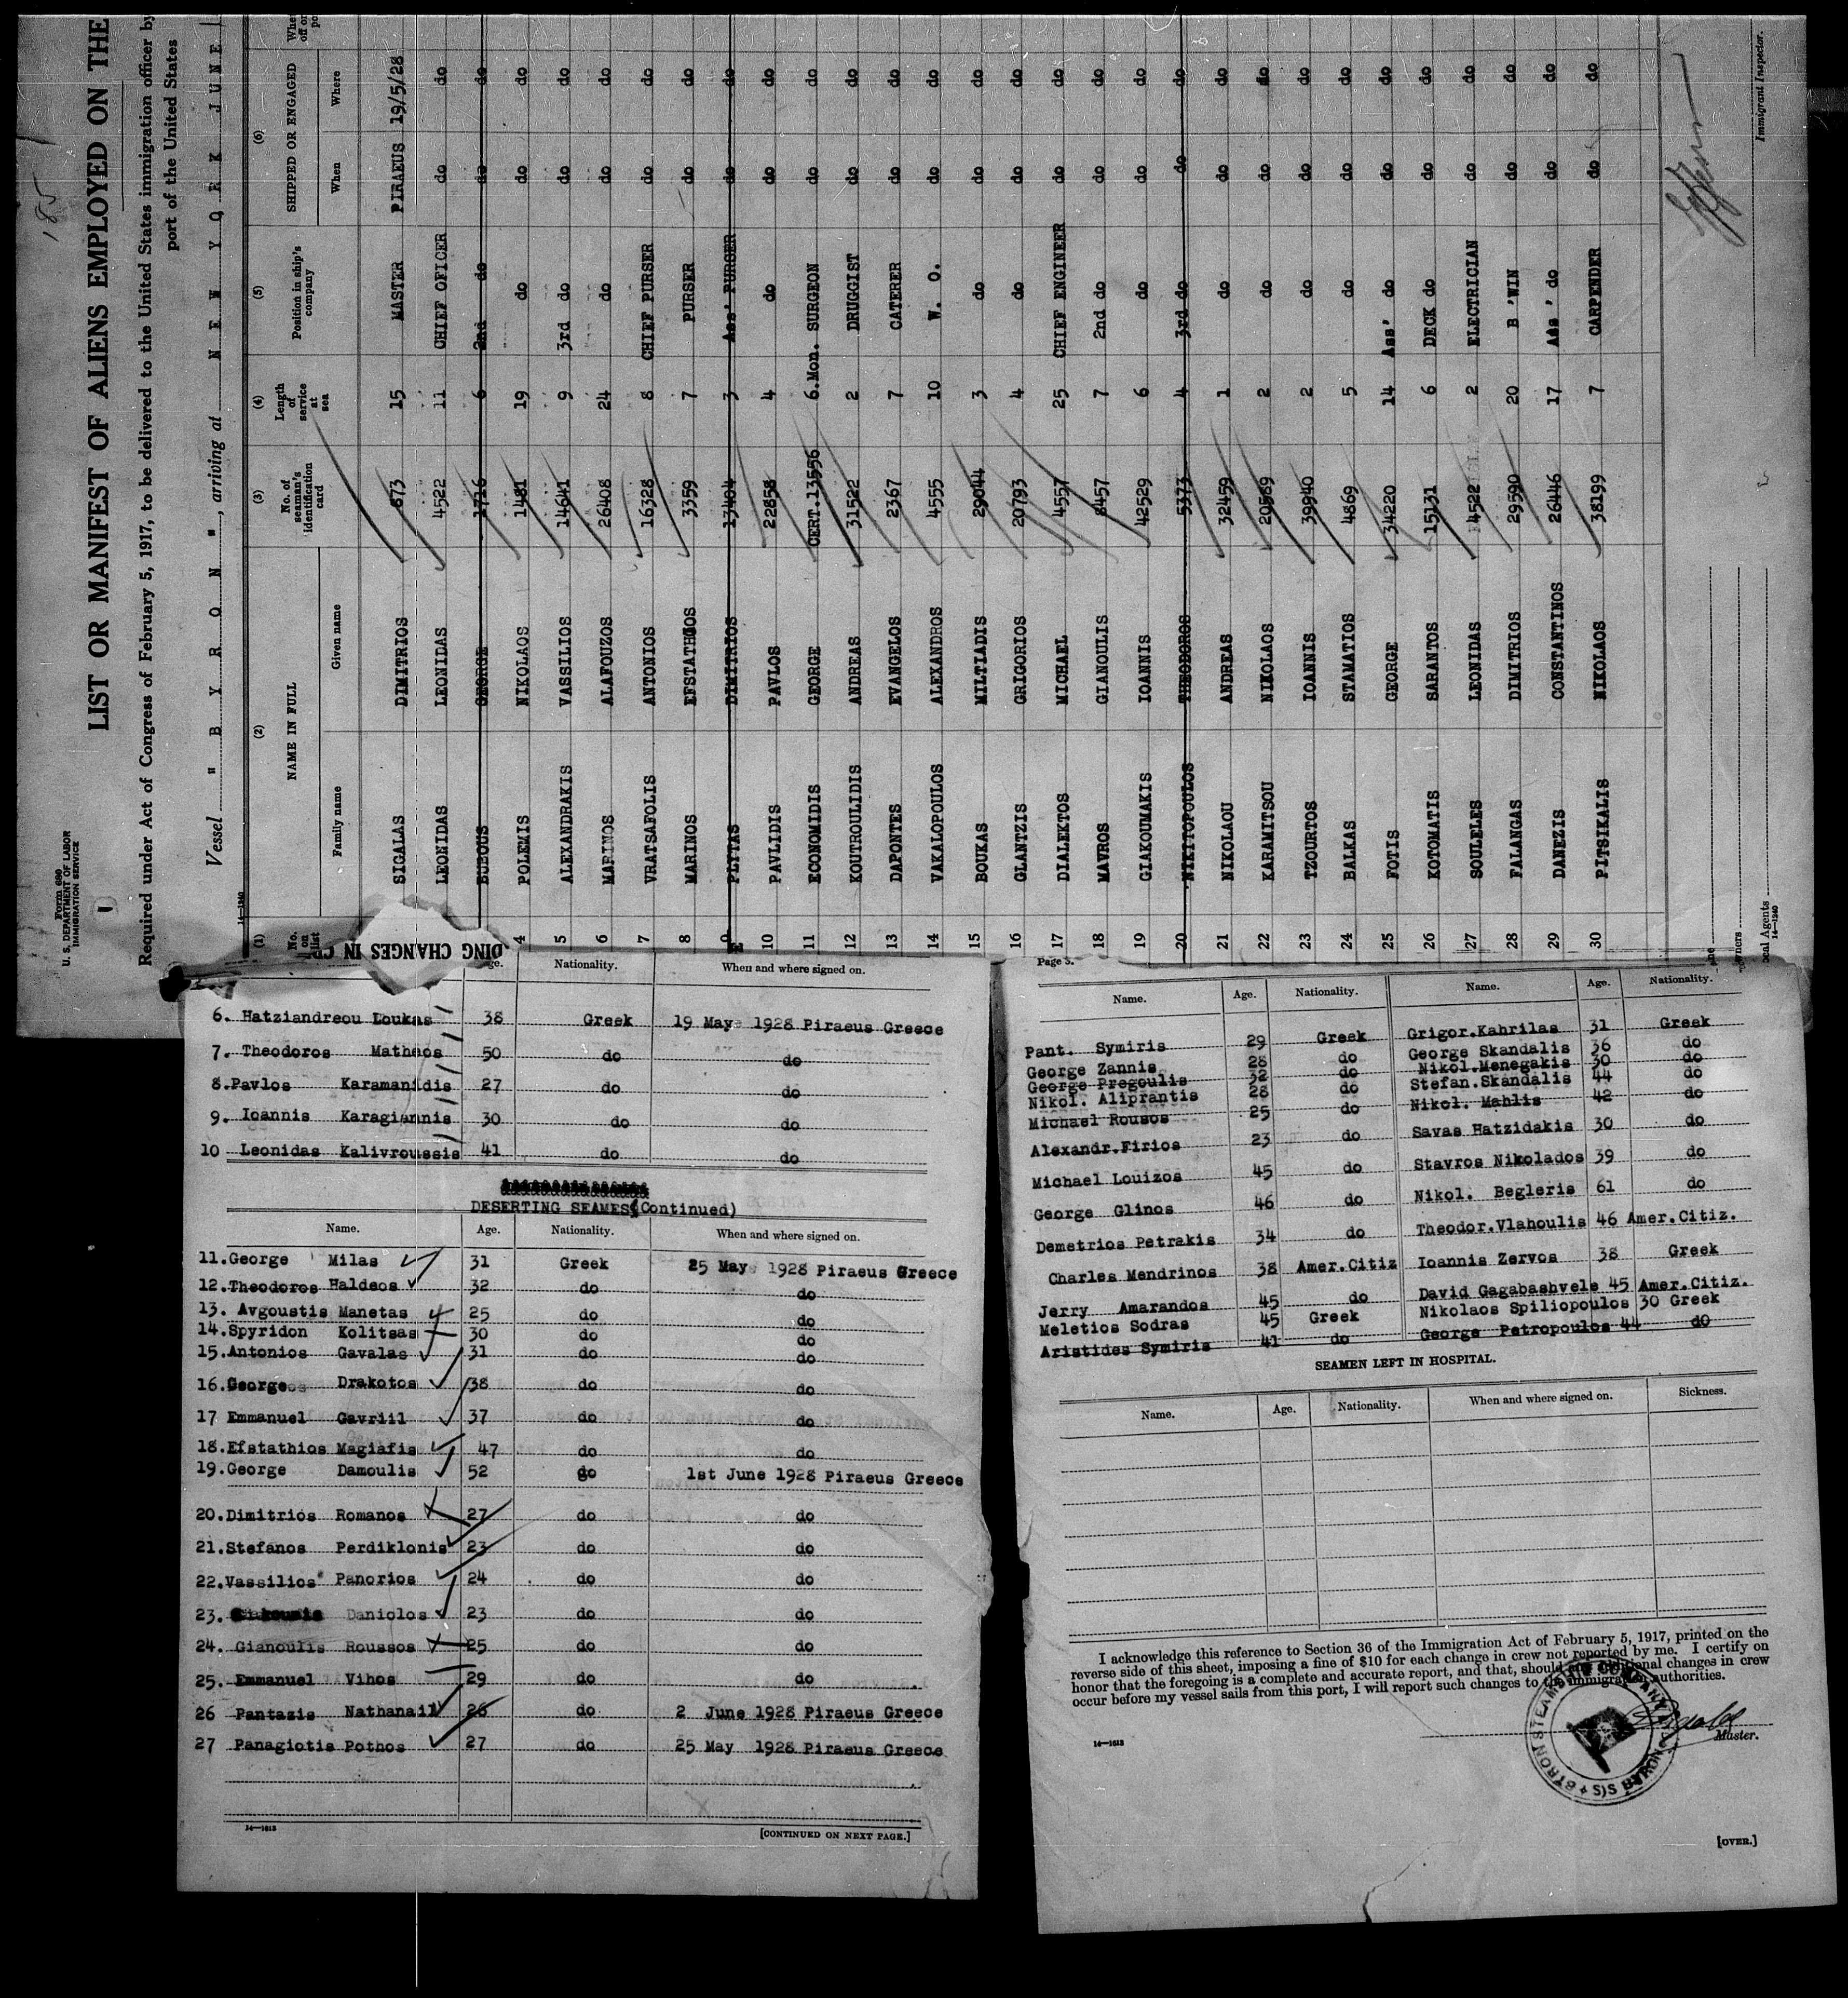 185
Form 680
U. S. DEPARTMENT OF LABOR
IMMIGRATION SERVICE
LIST OR MANIFEST OF ALIENS EMPLOYED ON THE
Required under Act of Congress of February 5, 1917, to be delivered to the United States immigration officer by
port of the United States
Vessel " B Y R O N ", arriving at N E W Y O R K JUNE
14—1240
(1) (2) (3) (4) (5) (6)
No. on list NAME IN FULL No. of seaman's identification card Length of service at sea Position in ship's company SHIPPED OR ENGAGED
Family name Given name When Where
SIGALAS DIMITRIOS 673 15 MASTER PIRAEUS 19/5/28
LEONIDAS LEONIDAS 4522 11 CHIEF OFICER do do
GEORGE 1716 6 2nd do do do
4 POLEMIS NIKOLAOS 1481 19 do do do
5 ALEXANDRAKIS VASSILIOS 14641 9 3rd do do do
6 MARINOS ALAFOUZOS 26408 24 do do do
7 VRATSAFOLIS ANTONIOS 16328 8 CHIEF PURSER do do
8 MARINOS EFSTATHIOS 3359 7 PURSER do do
9 PLYTAS DIMITRIOS 13404 3 Ass' PURSER do do
10 PAVLIDIS PAVLOS 22858 4 do do do
11 ECONOMIDIS GEORGE CERT.13556 6.Mon. SURGEON do do
12 KOUTROULIDIS ANDREAS 31522 2 DRUGGIST do do
13 DAPONTES EVANGELOS 2367 7 CATERER do do
14 VAKALOPOULOS ALEXANDROS 4555 10 W. O. do do
15 BOUKAS MILTIADIS 29044 3 do do do
16 GLANTZIS GRIGORIOS 20793 4 do do do
17 DIALEKTOS MICHAEL 4557 25 CHIEF ENGINEER do do
18 MAVROS GIANOULIS 8457 7 2nd do do do
19 GIAKOUMAKIS IOANNIS 42529 6 do do
20 NIKITOPOULOS THEODOROS 5373 4 3rd do do do
21 NIKOLAOU ANDREAS 32459 1 do do do
22 KARAMITSOU NIKOLAOS 20569 2 do do do
23 TZOURTOS IOANNIS 39940 2 do do do
24 BALKAS STAMATIOS 4869 5 do do do
25 FOTIS GEORGE 34220 14 Ass' do do do
26 KOTOMATIS SARANTOS 15131 6 DECK do do do
27 SOULELES LEONIDAS 4522 2 ELECTRICIAN do do
28 FALANGAS DIMITRIOS 29590 20 B 'WIN do do
29 DANEZIS CONSTANTINOS 26446 17 Ass' do do do
30 PITSIKALIS NIKOLAOS 38199 7 CARPENDER do do
Immigrant Inspector.
14—1240
DING CHANGES IN
Nationality. When and where signed on.
6. Hatziandreou Loukas 38 Greek 19 May 1928 Piraeus Greece
7. Theodoros Matheos 50 do do
8. Pavlos Karamanidis 27 do do
9. Ioannis Karagiannis 30 do do
10 Leonidas Kalivroussis 41 do do
DESERTING SEAMES(Continued)
Name. Age. Nationality. When and where signed on.
11. George Milas 31 Greek 25 May 1928 Piraeus Greece
12. Theodoros Haldeos 32 do do
13. Avgoustis Manetas 25 do do
14. Spyridon Kolitsas 30 do do
15. Antonios Gavalas 31 do do
16. George Drakotos 38 do do
17 Emmanuel Gavriil 37 do do
18. Efstathios Magiafis 47 do do
19. George Damoulis 52 do 1st June 1928 Piraeus Greece
20. Dimitrios Romanos 27 do do
21. Stefanos Perdiklonis 23 do do
22. Vassilios Panorios 24 do do
23. Daniolos 23 do do
24. Gianoulis Roussos 25 do do
25. Emmanuel Vihos 29 do do
26 Pantazis Nathanail 26 do 2 June 1928 Piraeus Greece
27 Panagiotis Pothos 27 do 25 May 1928 Piraeus Greece
14—1613
[CONTINUED ON NEXT PAGE.]
Page 3.
Name. Age. Nationality. Name. Age. Nationality.
Pant. Symiris 29 Greek Grigor.Kahrilas 31 Greek
George Zannis 28 do George Skandalis 36 do
George Pregoulis 32 do Nikol.Menegakis 30 do
Nikol. Aliprantis 28 do Stefan.Skandalis 44 do
Michael Rousos 25 do Nikol. Mahlis 42 do
Alexandr.Firios 23 do Savas Hatzidakis 30 do
Michael Louizos 45 do Stavros Nikolados 39 do
George Glinos 46 do Nikol. Begleris 61 do
Demetrios Petrakis 34 do Theodor.Vlahoulis 46 Amer.Citiz.
Charles Mendrinos 38 Amer.Citiz Ioannis Zervos 38 Greek
Jerry Amarandos 45 do David Gagabashvele 45 Amer.Citiz.
Meletios Sodras 45 Greek Nikolaos Spiliopoulos 30 Greek
Aristides Symiris 41 do George Petropoulos 44 dO
SEAMEN LEFT IN HOSPITAL.
Name. Age. Nationality. When and where signed on. Sickness.
I acknowledge this reference to Section 36 of the Immigration Act of February 5, 1917, printed on the
reverse side of this sheet, imposing a fine of $10 for each change in crew not reported by me. I certify on
honor that the foregoing is a complete and accurate report, and that, should any additional changes in crew
occur before my vessel sails from this port, I will report such changes to the immigration authorities.
BYRON STEAMSHIP COMPANY
S/S BYRON
Master.
14—1613
[OVER.]